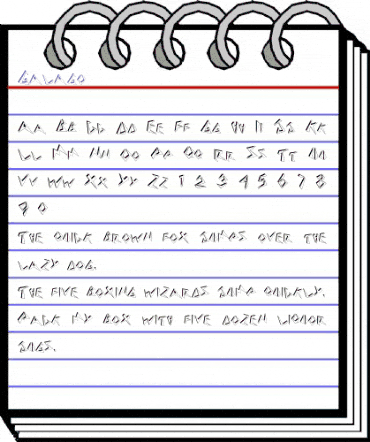 GALAGO
AA BB CC DD EE FF GG HH II JJ KK
LL MM NN OO PP QQ RR SS TT UU
VV WW XX YY ZZ 1 2 3 4 5 6 7 8
9 0
THE QUICK BROWN FOX JUMPS OVER THE
LAZY DOG.
THE FIVE BOXING WIZARDS JUMP QUICKLY.
PACK MY BOX WITH FIVE DOZEN LIQUOR
JUGS.